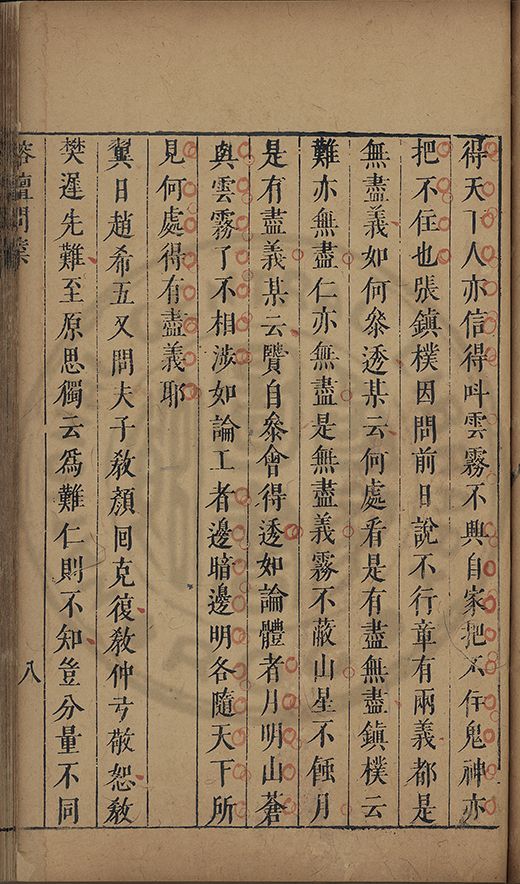 得天下人亦信得呌雲霧不興自家把不住鬼神亦
把不住也張鎮樸因問前日說不行章有兩義都是
無盡義如何叅透某云何處看是有盡無盡鎮樸云
難亦無盡仁亦無盡是無盡義霧不蔽山星不蝕月
是有盡義某云賢自叅會得透如論體者月明山蒼
與雲霧了不相涉如論工者邊暗邊明各隨天下所
見何處得有盡義耶
翼日趙希五又問夫子敎顏回克復敎仲弓敬恕敎
樊遲先難至原思獨云為難仁則不知豈分量不同
榕壇問業
八